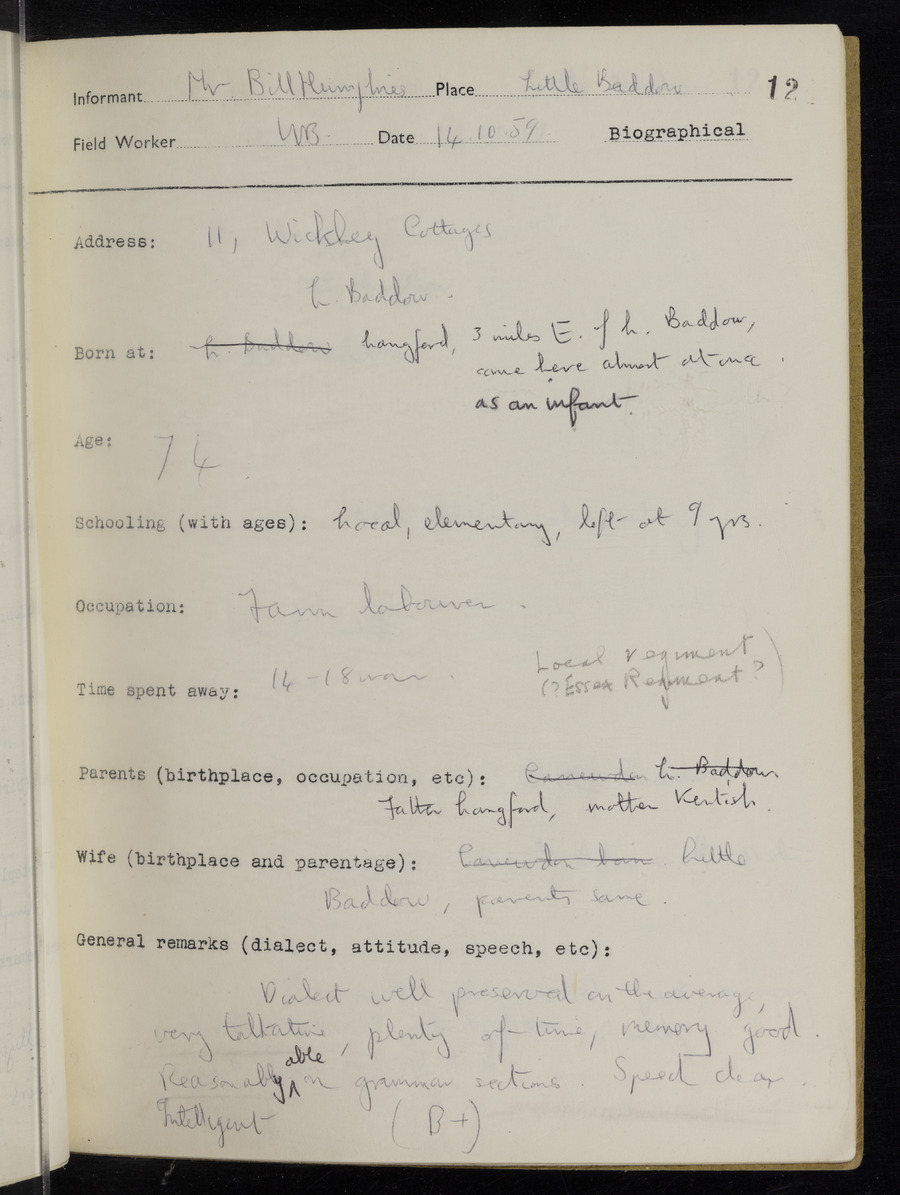 Informant Mr. Bill Humphries Place Little Baddow 12
Field Worker WB. Date 14.10.59 Biographical
Address: 11, Wickhey Cottages
L. Baddow.
Born at: L. Baddow Langford, 3 miles E. of L. Baddow,
came here almost at once
as an infant.
Age: 74
Schooling (with ages): Local, elementary, left at 9 yrs.
Occupation: Farm labourer.
Time spent away: 14-18 war. Local regiment
(? Essex Regiment?)
Parents (birthplace, occupation, etc): Canewdon L. Baddow
Father Langford, mother Kentish.
Wife (birthplace and parentage): Canewdon born. Little
Baddow, parents same.
General remarks (dialect, attitude, speech, etc):
Dialect well preserved on the average,
very talkative, plenty of time, memory good.
Reasonably able on grammar sections. Speech clear.
Intelligent (B+)